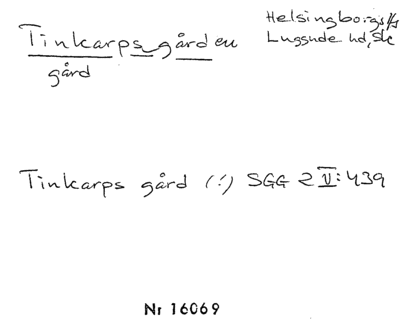 Tinkarps gården
gård
Helsingborgs lfs
Luggude hd, Sk
Tinkarps gård (:) SGG 2 V:439
Nr 16069